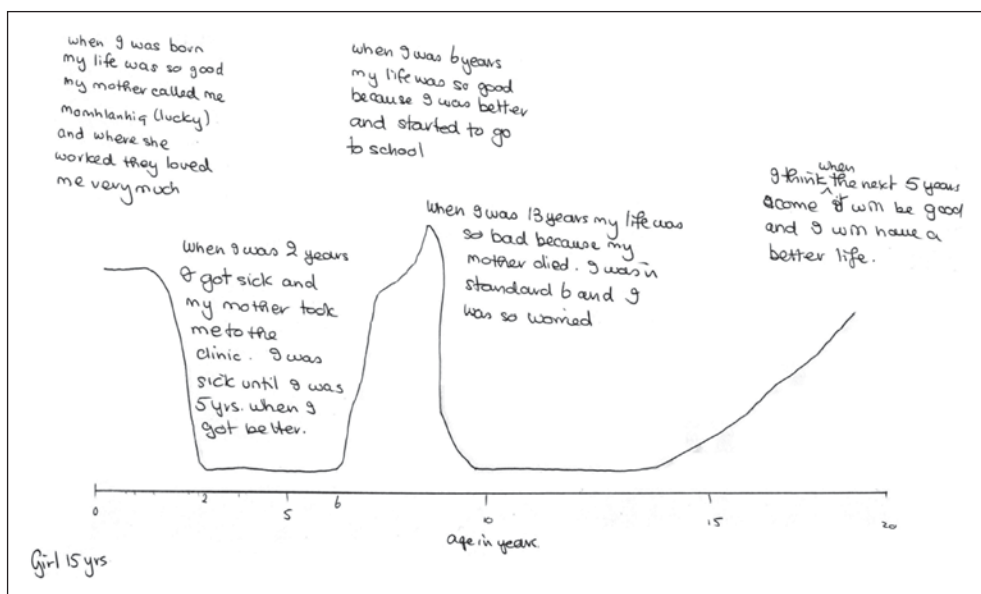 when I was born
my life was so good
my mother called me
momhlanhiq (lucky)
and where she
worked they loved
me very much
when I was 6 years
my life was so good
because I was better
and started to go
to school
when I was 2 years
I got sick and
my mother took
me to the
clinic. I was
sick until I was
5 yrs. when I
got better.
when I was 13 years my life was
so bad because my
mother died. I was in
standard 6 and I
was so worried
I think when the next 5 years
come it will be good
and I will have a
better life.
0 2 5 6 10 15 20
age in years.
Girl 15 yrs